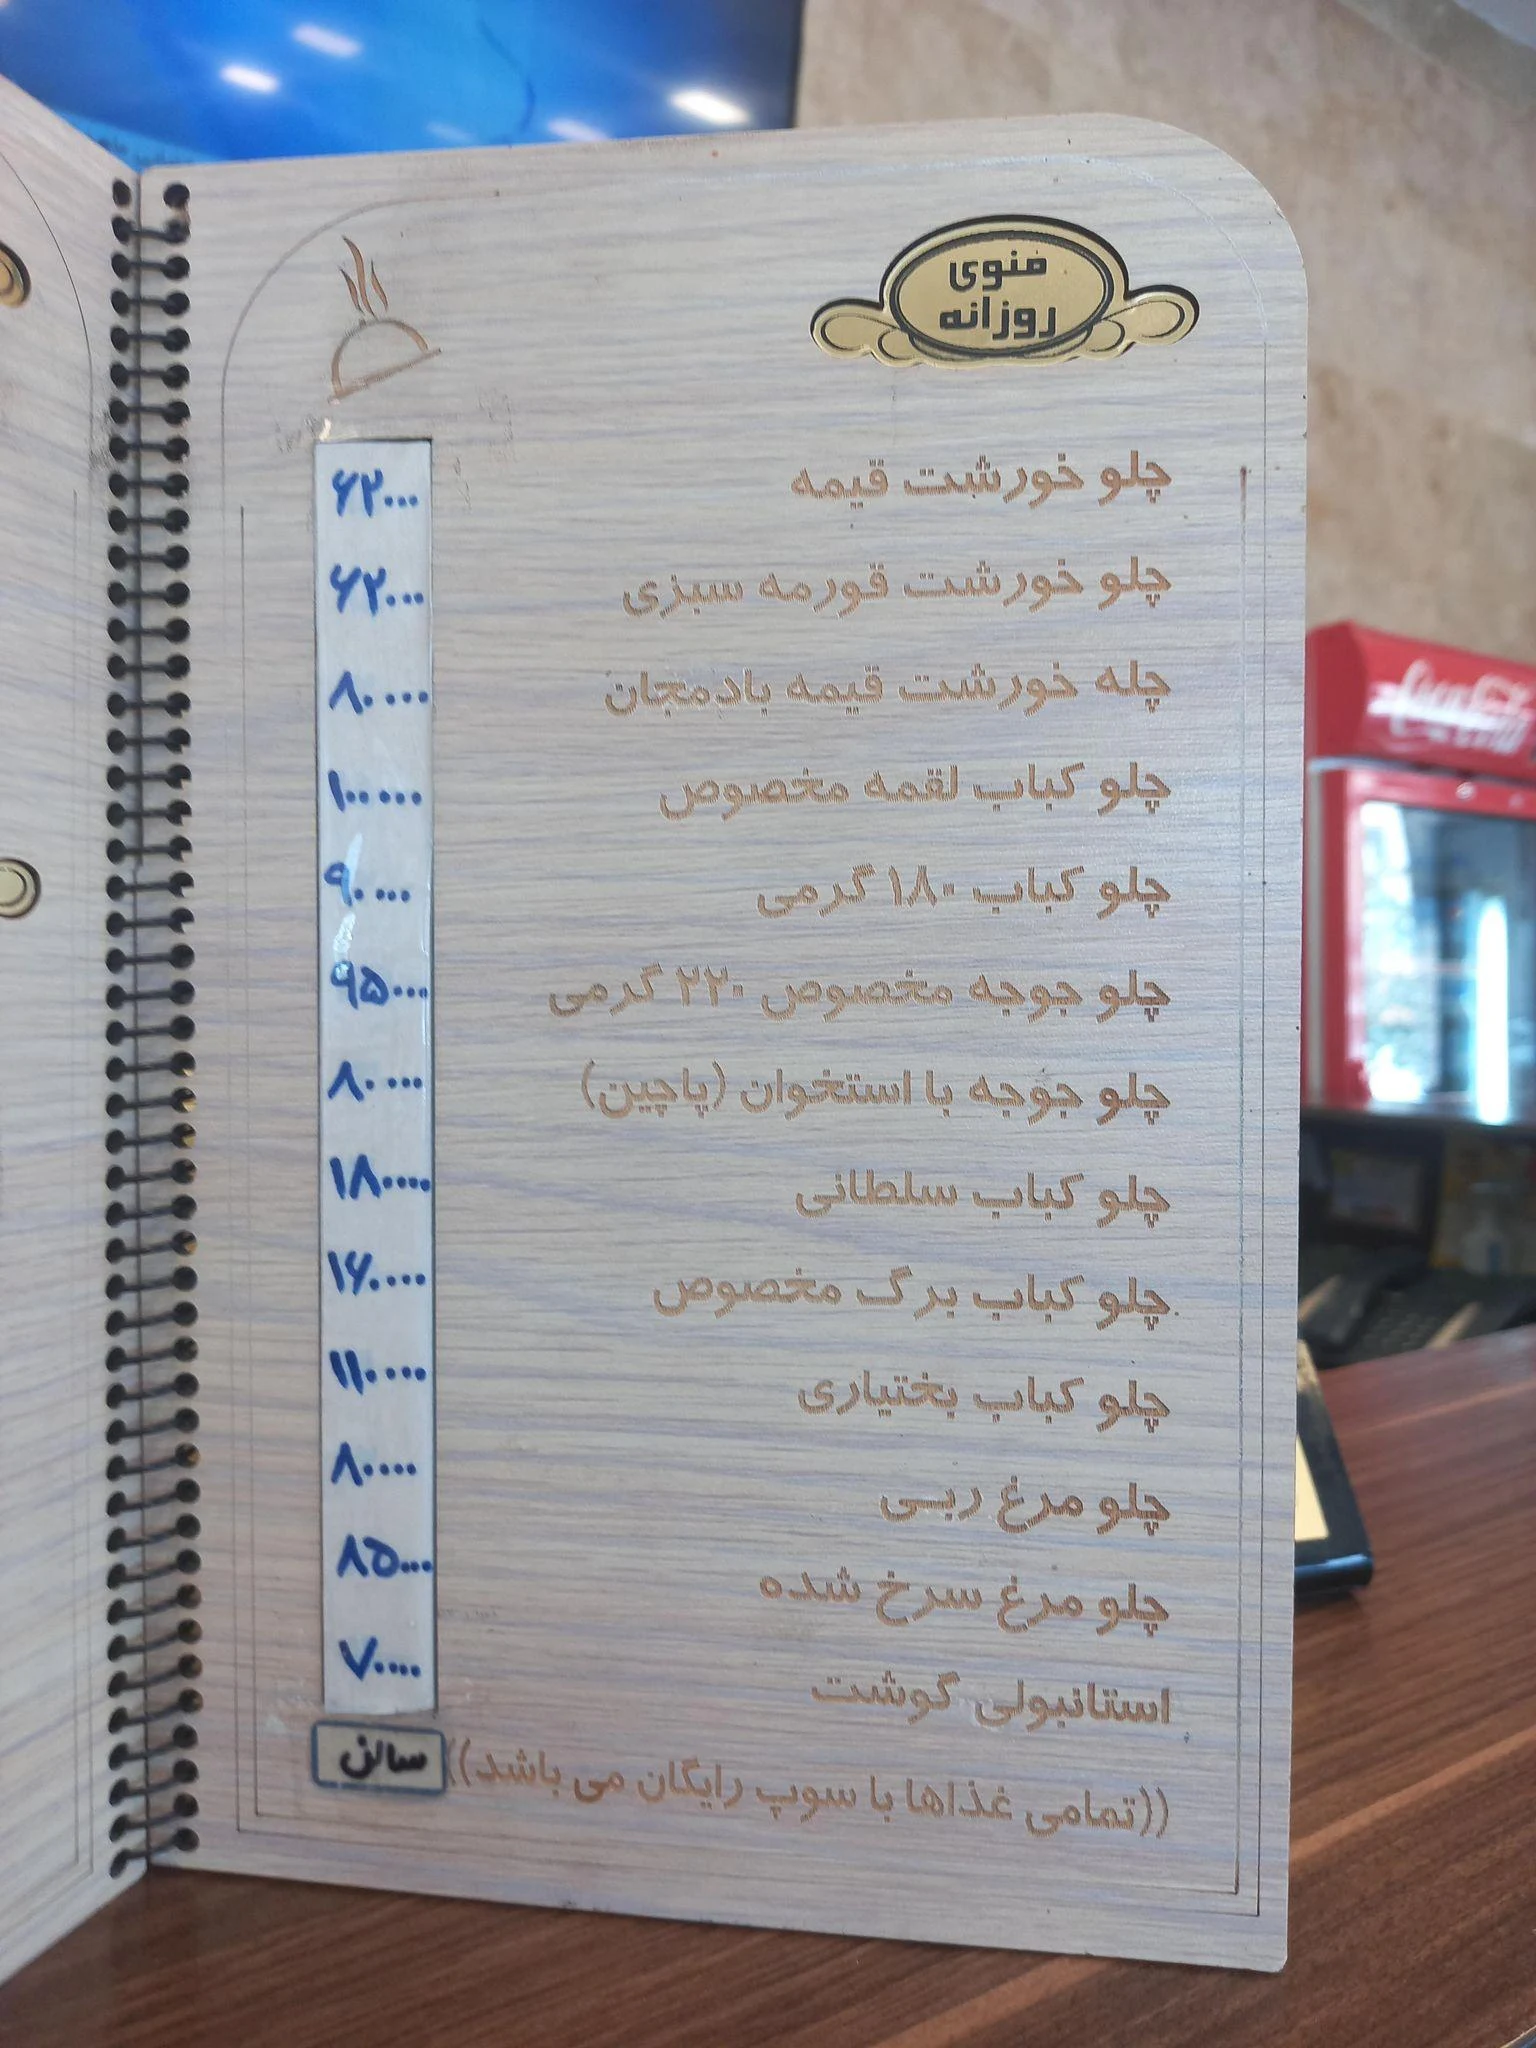 منوی
روزانه
چلو خورشت قیمه ۶۲۰۰۰
چلو خورشت قورمه سبزی ۶۲۰۰۰
چله خورشت قیمه بادمجان ۸۰۰۰۰
چلو کباب لقمه مخصوص ۱۰۰۰۰۰
چلو کباب ۱۸۰ گرمی ۹۰۰۰۰
چلو جوجه مخصوص ۲۲۰ گرمی ۹۵۰۰۰
چلو جوجه با استخوان (پاچین) ۸۰۰۰۰
چلو کباب سلطانی ۱۸۰۰۰۰
چلو کباب برگ مخصوص ۱۶۰۰۰۰
چلو کباب بختیاری ۱۱۰۰۰۰
چلو مرغ ربی ۸۰۰۰۰
چلو مرغ سرخ شده ۸۵۰۰۰
استانبولی گوشت ۷۰۰۰۰
((تمامی غذاها با سوپ رایگان می باشد)) سالن